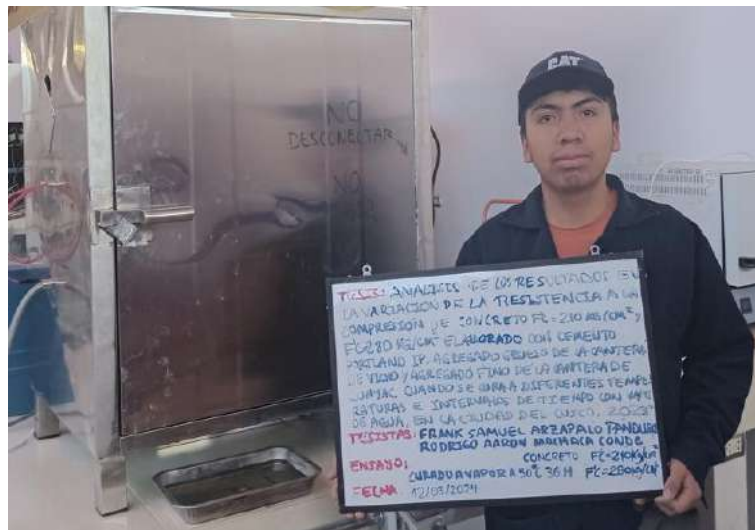 CAT
NO
DESCONECTAR
NO
TESIS: ANALISIS DE LOS RESULTADOS EN
LA VARIACIÓN DE LA RESISTENCIA A LA
COMPRESIÓN DE CONCRETO F'C=210 KG/CM², Y
F'C 280 KG/CM² ELABORADO CON CEMENTO
PORTLAND IP, AGREGADO GRUESO DE LA CANTERA
DE VICHO Y AGREGADO FINO DE LA CANTERA DE
CUNYAC, CUANDO SE CURA A DIFERENTES TEMPE
RATURAS E INTERVALOS DE TIEMPO CON VAPOR
DE AGUA, EN LA CIUDAD DEL CUSCO, 2023"
TESISTAS: FRANK SAMUEL ARZAPALO PANDURO
RODRIGO AARON MACHACA CONDE
CONCRETO F'C=210KG/CM²
ENSAYO: CURADO A VAPOR A 50°C 36H F'C=280KG/CM²
FECHA 12/03/2024